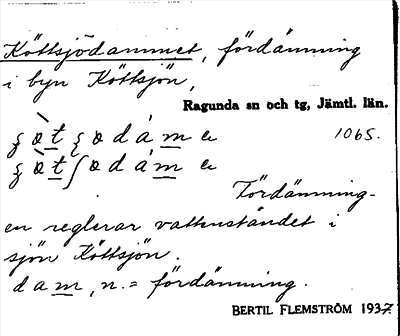 Köttsjödammet, fördämning
i byn Köttsjön,
Ragunda sn och tg, Jämtl. län.
1065.
Fördämning-
en reglerar vattenståndet i
sjön Köttsjön.
dam, n. = fördämning.
BERTIL FLEMSTRÖM 1937.